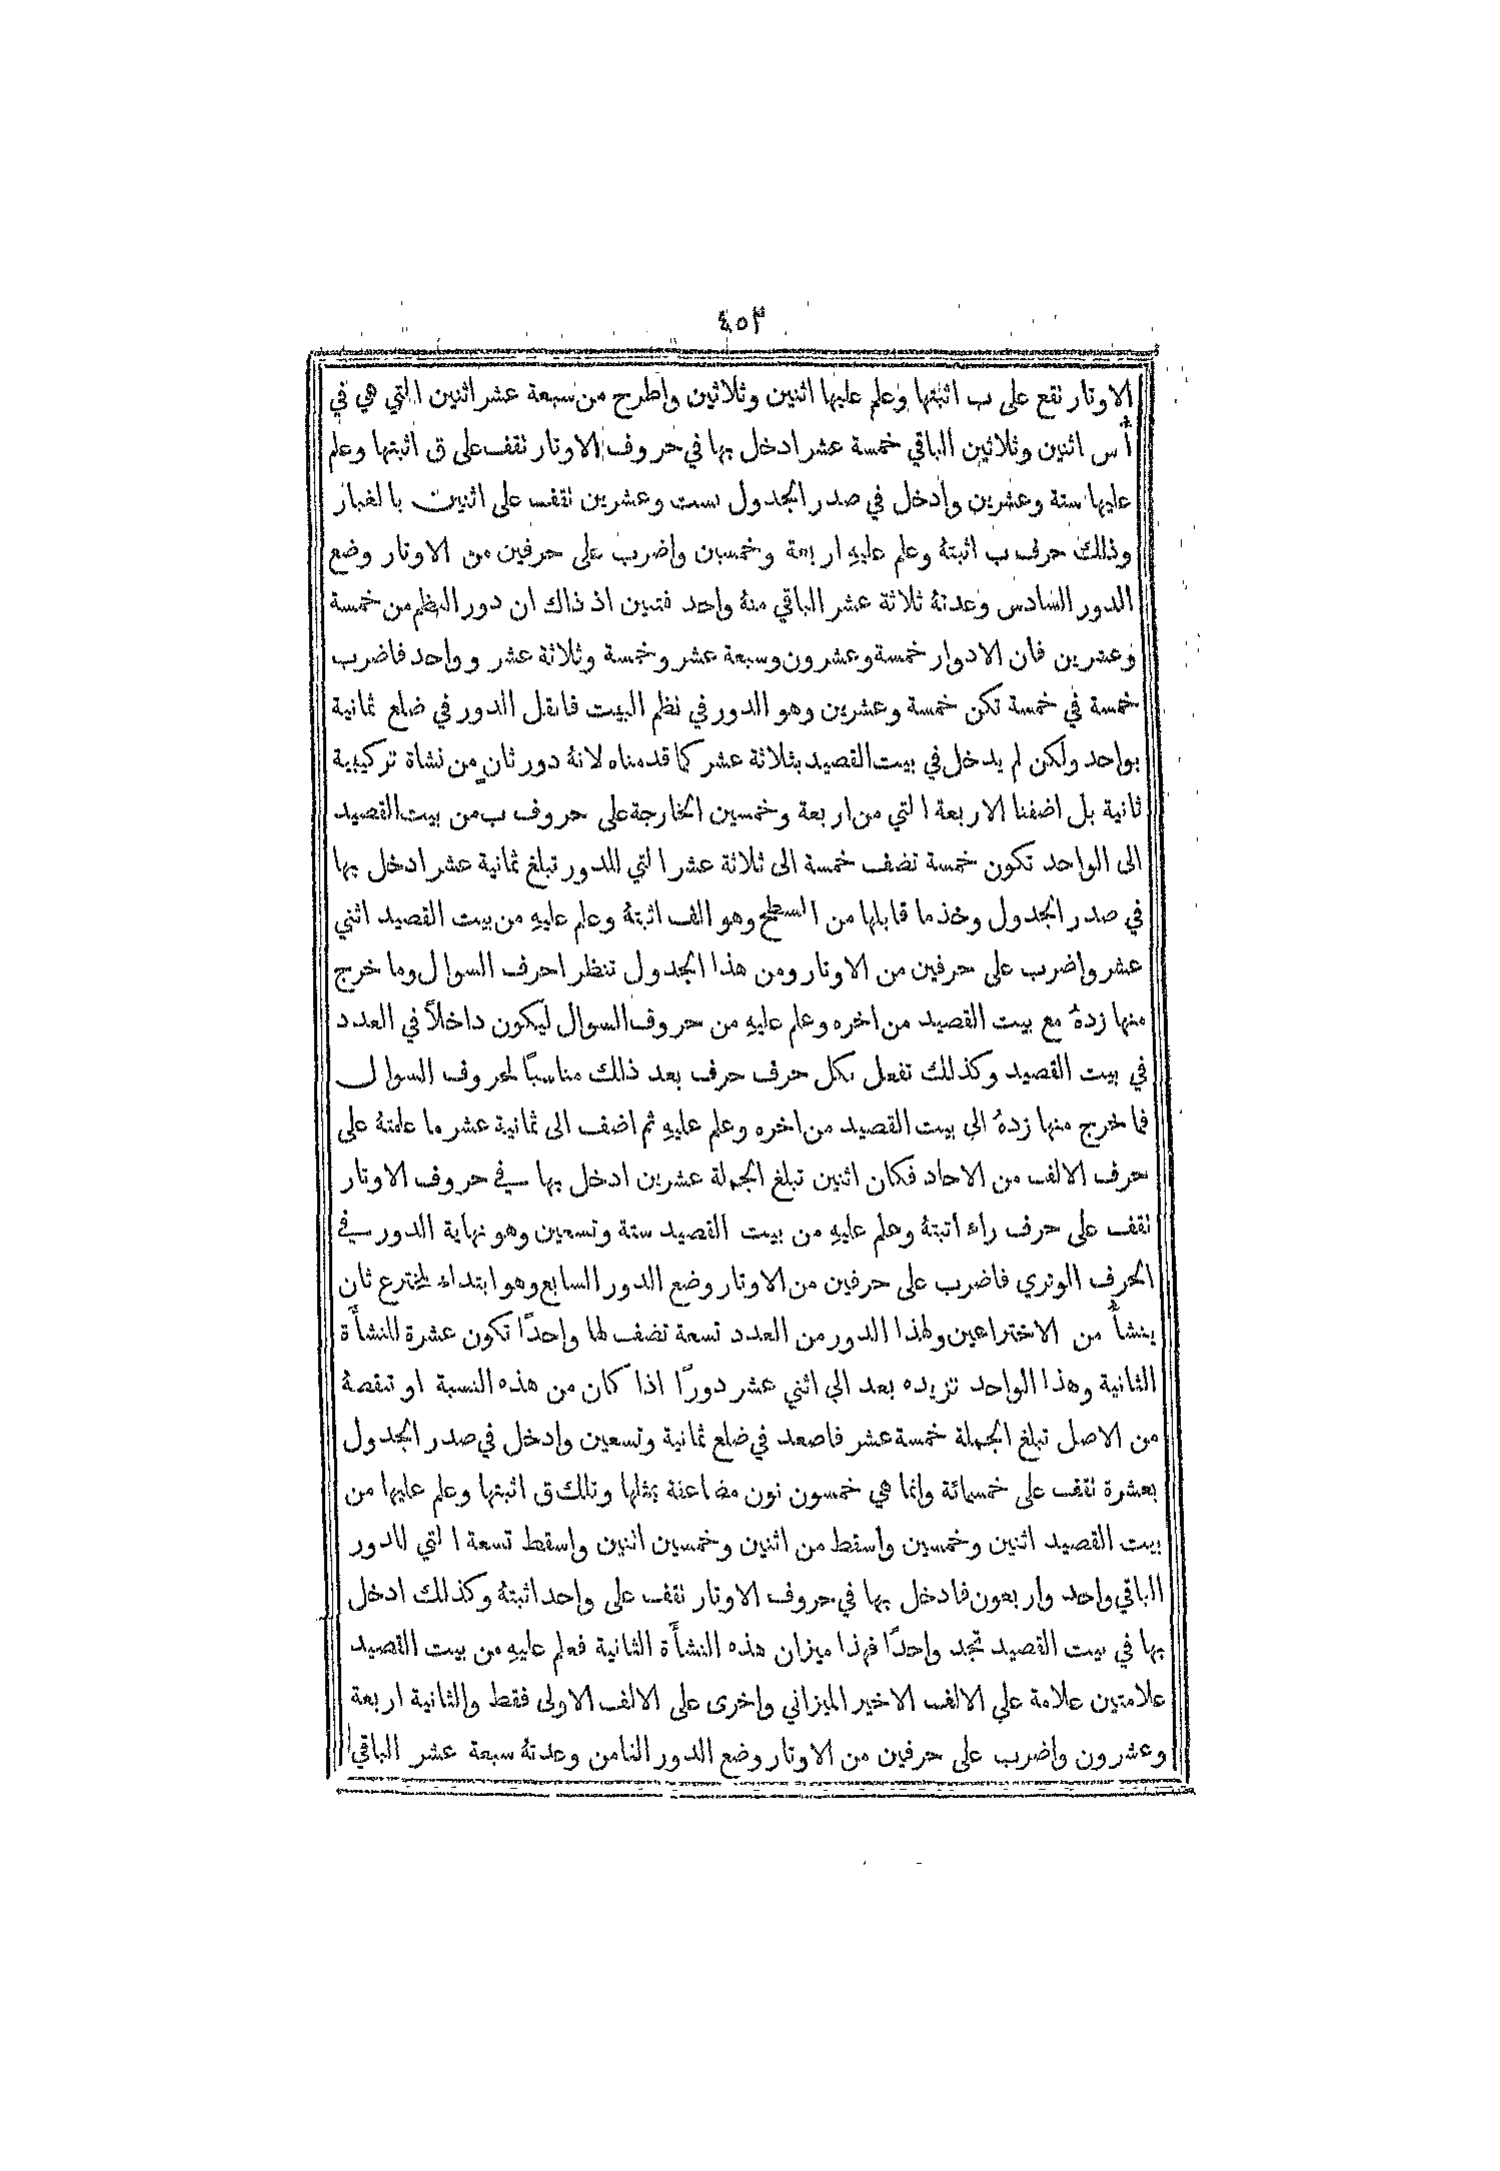 ٤٥٣
الاوتار تقع على ب اثبتها وعلم عليها اثنين وثلاثين واطرح من سبعة عشر اثنين التي هي في
أس اثنين وثلاثين الباقي خمسة عشر ادخل بها في حروف الاوتار تقف على ق اثبتها وعلم
عليها ستة وعشرين وادخل في صدر الجدول بست وعشرين تقف على اثنين بالغبار
وذلك حرف ب اثبتهُ وعلم عليهِ اربعة وخمسين واضرب على حرفين من الاوتار وضع
الدور السادس وعدتهُ ثلاثة عشر الباقي منهُ واحد فتبين اذ ذاك ان دور النظم من خمسة
وعشرين فان الادوار خمسة وعشرون وسبعة عشر وخمسة وثلاثة عشر وواحد فاضرب
خمسة في خمسة تكن خمسة وعشرين وهو الدور في نظم البيت فانقل الدور في ضلع ثمانية
بواحد ولكن لم يدخل في بيت القصيد بثلاثة عشر كما قدمناه لانهُ دور ثانٍ من نشاة تركيبية
ثانية بل اضفنا الاربعة التي من اربعة وخمسين الخارجة على حروف ب من بيت القصيد
الى الواحد تكون خمسة تضف خمسة الى ثلاثة عشر التي للدور تبلغ ثمانية عشر ادخل بها
في صدر الجدول وخذ ما قابلها من السطح وهو الف اثبتهُ وعلم عليهِ من بيت القصيد اثني
عشر واضرب على حرفين من الاوتار ومن هذا الجدول تنظر احرف السوال وما خرج
منها زدهُ مع بيت القصيد من اخره وعلم عليهِ من حروف السوال ليكون داخلاً في العدد
في بيت القصيد وكذلك تفعل بكل حرف حرف بعد ذلك مناسبًا لحروف السوال
فما خرج منها زدهُ الى بيت القصيد من اخره وعلم عليهِ ثم اضف الى ثمانية عشر ما علمتهُ على
حرف الالف من الاحاد فكان اثنين تبلغ الجملة عشرين ادخل بها في حروف الاوتار
تقف على حرف راء اثبتهُ وعلم عليهِ من بيت القصيد ستة وتسعين وهو نهاية الدور في
الحرف الوتري فاضرب على حرفين من الاوتار وضع الدور السابع وهو ابتداء لمخترع ثان
ينشأُ من الاختراعين ولهذا الدور من العدد تسعة تضف لها واحدًا تكون عشرة للنشأَة
الثانية وهذا الواحد تزيده بعد الى اثني عشر دورًا اذا كان من هذه النسبة او تنقصهُ
من الاصل تبلغ الجملة خمسة عشر فاصعد في ضلع ثمانية وتسعين وادخل في صدر الجدول
بعشرة تقف على خمسمائة وانما هي خمسون نون مضاعفة بمثلها وتلك ق اثبتها وعلم عليها من
بيت القصيد اثنين وخمسين واسقط من اثنين وخمسين اثنين واسقط تسعة التي للدور
الباقي واحد واربعون فادخل بها في حروف الاوتار تقف على واحد اثبتهُ وكذلك ادخل
بها في بيت القصيد تجد واحدًا فهذا ميزان هذه النشأَة الثانية فعلم عليهِ من بيت القصيد
علامتين علامة على الالف الاخير الميزاني واخرى على الالف الاولى فقط والثانية اربعة
وعشرون واضرب على حرفين من الاوتار وضع الدور الثامن وعدتهُ سبعة عشر الباقي